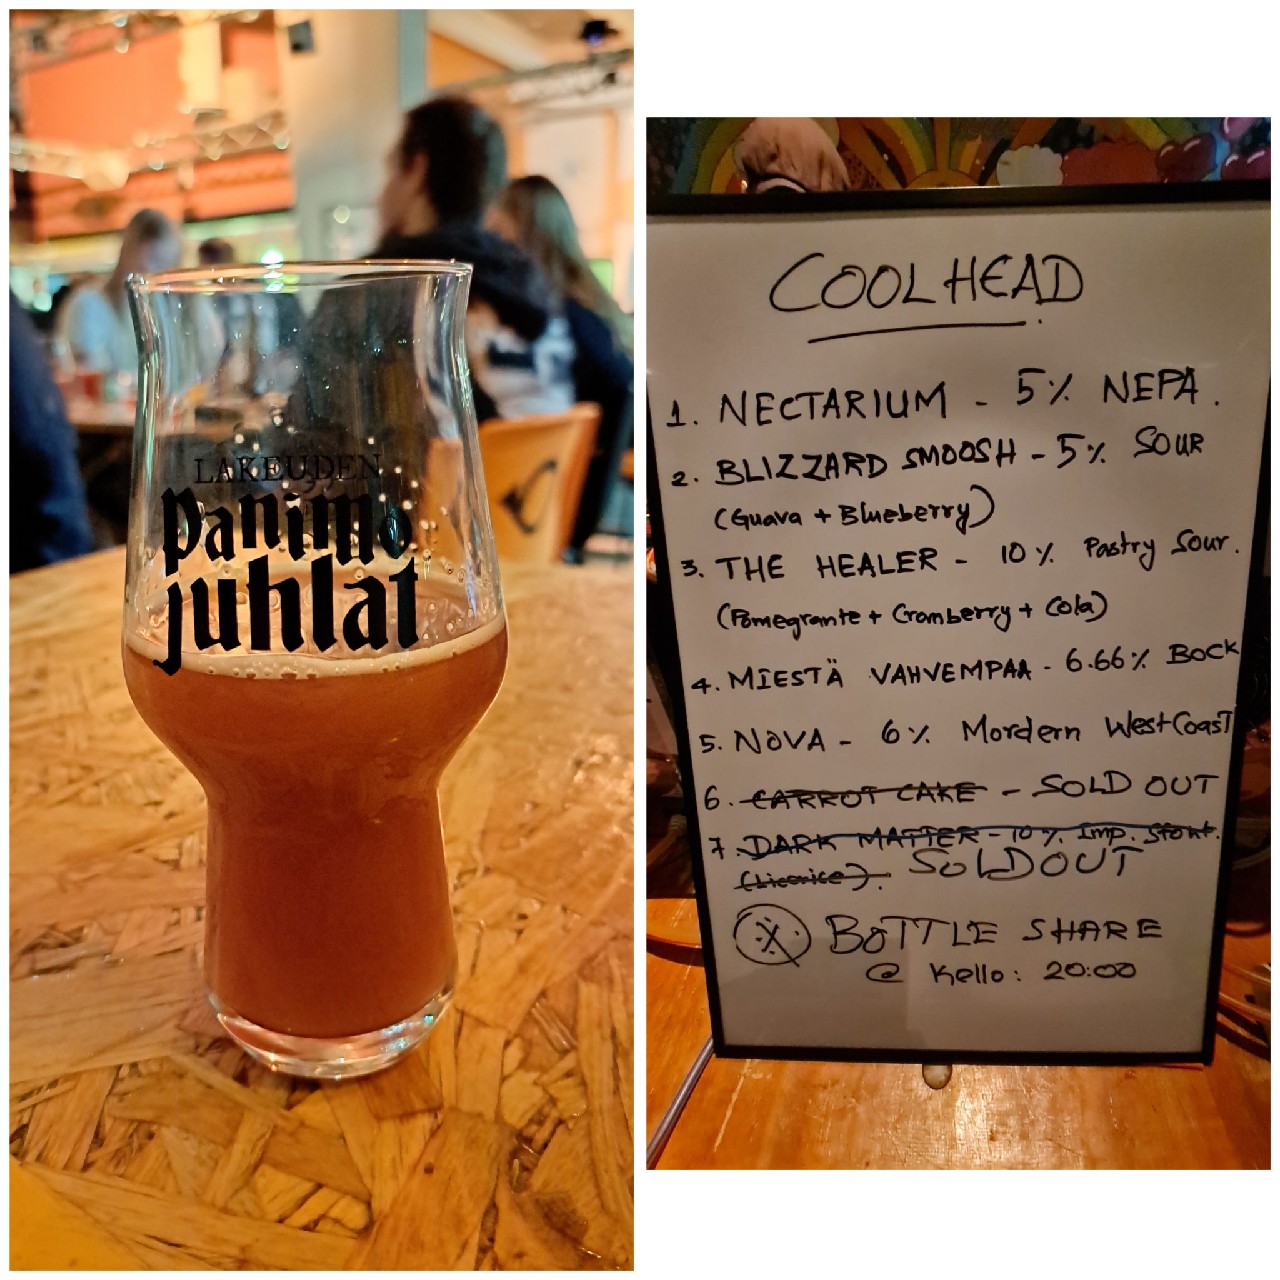 LAKEUDEN
Panimo
juhlat
COOLHEAD
1. NECTARIUM - 5% NEPA.
2. BLIZZARD SMOOSH - 5% SOUR
(Guava + Blueberry)
3. THE HEALER - 10% Pastry Sour.
(Pomegrante + Cramberry + Cola)
4. MIESTÄ VAHVEMPAA - 6.66% BOCK
5. NOVA - 6% Mordern WestCoast
6. CARROT CAKE - SOLD OUT
7. DARK MATTER - 10% Imp. Stout.
(Licorice). SOLD OUT
BOTTLE SHARE
@ Kello: 20:00